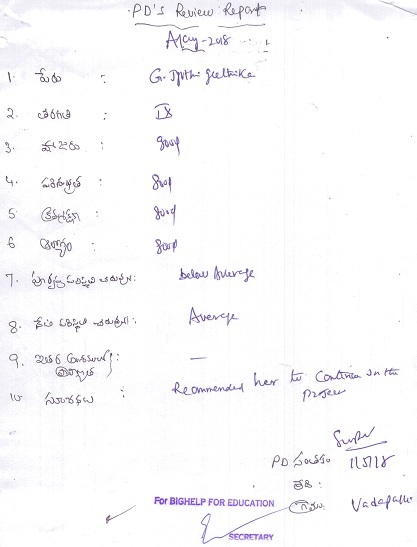 PD's Review Report
May-2018
1. పేరు : G. Jyothi Geethika
2. తరగతి : IX
3. హాజరు : Good
4. పరిశుభ్రత : Good
5 క్రమశిక్షణ : Good
6 ఆరోగ్యం : Good
7. పూర్వపు పరిస్థితి చదువులో : below Average
8. నేటి పరిస్థితి చదువులో : Average
9. ఇతర : —
10 సూచనలు : Recommended her to Continue in the
Project
PD సంతకం 1/5/18
తేది :
గ్రామం, Vadapalli
For BIGHELP FOR EDUCATION
SECRETARY